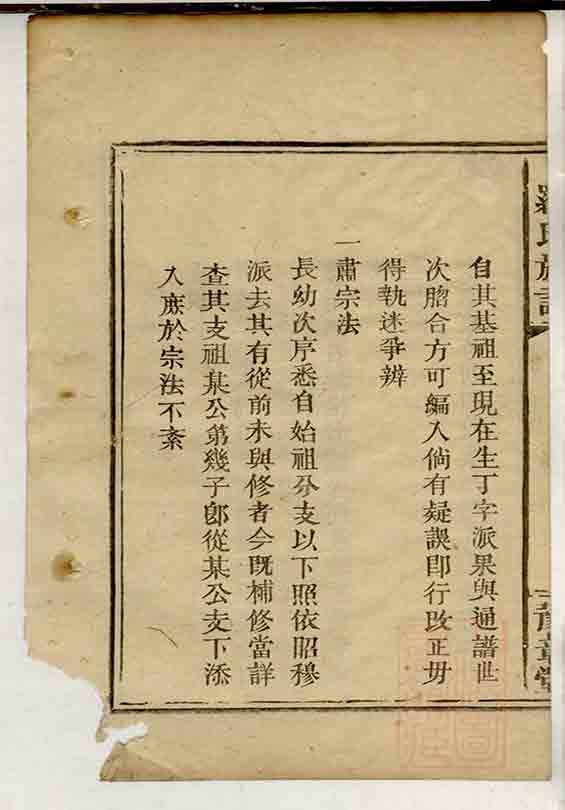 羅氏族譜
豫章堂
自其基祖至現在生丁字派果與通譜世
次脗合方可編入倘有疑誤即行改正毋
得執迷爭辨
一肅宗法
長幼次序悉自始祖分支以下照依昭穆
派去其有從前未與修者今既補修當詳
查其支祖某公第幾子郎從某公支下添
入庶於宗法不紊